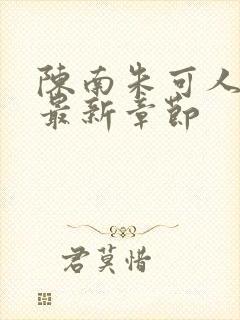 陳南朱可人
最新章節
君莫惜